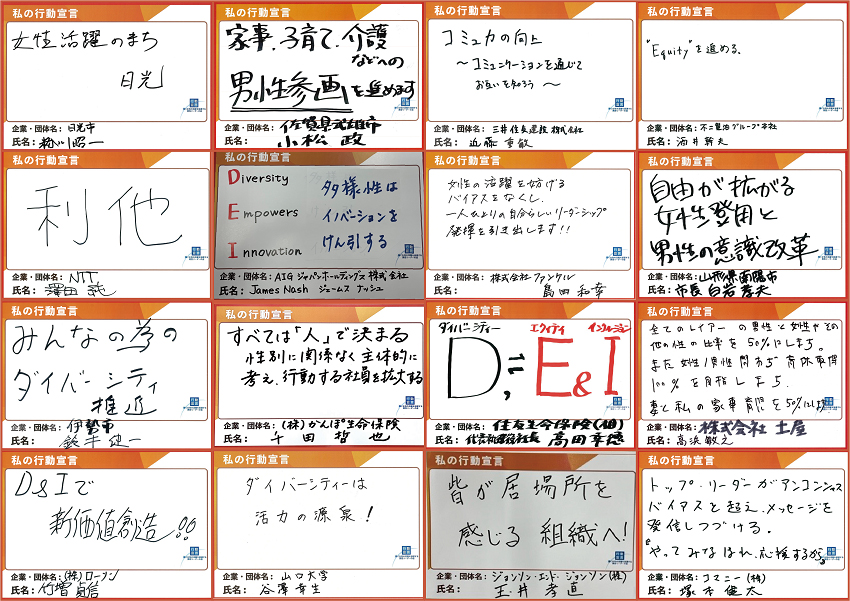 私の行動宣言
女性活躍のまち
日光
企業・団体名: 日光市
氏名: 粉川昭一
私の行動宣言
家事、子育て、介護
などへの
男性参画を進めます
企業・団体名: 佐賀県武雄市
氏名: 小松 政
私の行動宣言
コミュ力の向上
～コミュニケーションを通じて
お互いを知ろう～
企業・団体名: 三井住友建設株式会社
氏名: 近藤重敏
私の行動宣言
"Equity"を進める.
企業・団体名: 不二製油グループ本社
氏名: 酒井幹夫
私の行動宣言
利他
企業・団体名: NTT
氏名: 澤田 純
私の行動宣言
Diversity
Empowers
Innovation
多様性は
イノベーションを
けん引する
企業・団体名: AIGジャパンホールディングス株式会社
氏名: James Nash ジェームス ナッシュ
私の行動宣言
女性の活躍を妨げる
バイアスをなくし、
一人ひとりの自分らしいリーダーシップ
発揮を引き出します!!
企業・団体名: 株式会社ファンケル
氏名: 島田和幸
私の行動宣言
自由が拡がる
女性登用と
男性の意識改革
企業・団体名: 山形県南陽市
氏名: 市長 白岩孝夫
私の行動宣言
みんなの為の
ダイバーシティ
推進
企業・団体名: 伊勢市
氏名: 鈴木健一
私の行動宣言
すべては「人」で決まる
性別に関係なく主体的に
考え、行動する社員を拡大する
企業・団体名: (株)かんぽ生命保険
氏名: 千田哲也
私の行動宣言
ダイバーシティー エクイティ インクルージョン
D, ⇄ E&I
企業・団体名: 住友生命保険(相)
氏名: 代表執行役社長 高田幸徳
私の行動宣言
全てのレイアーの男性と女性やその
他の性の比率を50%にします。
また女性/男性問わず育休取得
100%を目指します。
妻と私の家事育児を50%にします。
企業・団体名: 株式会社 土屋
氏名: 高浜敏之
私の行動宣言
D&Iで
新価値創造!!
企業・団体名: (株)ローソン
氏名: 竹増貞信
私の行動宣言
ダイバーシティーは
活力の源泉!
企業・団体名: 山口大学
氏名: 谷澤幸生
私の行動宣言
皆が居場所を
感じる組織へ!
企業・団体名: ジョンソン・エンド・ジョンソン(株)
氏名: 玉井孝直
私の行動宣言
トップ・リーダーがアンコンシャス
バイアスを超え、メッセージを
発信しつづける。
"やってみなはれ、応援するから"
企業・団体名: コマニー(株)
氏名: 塚本健太